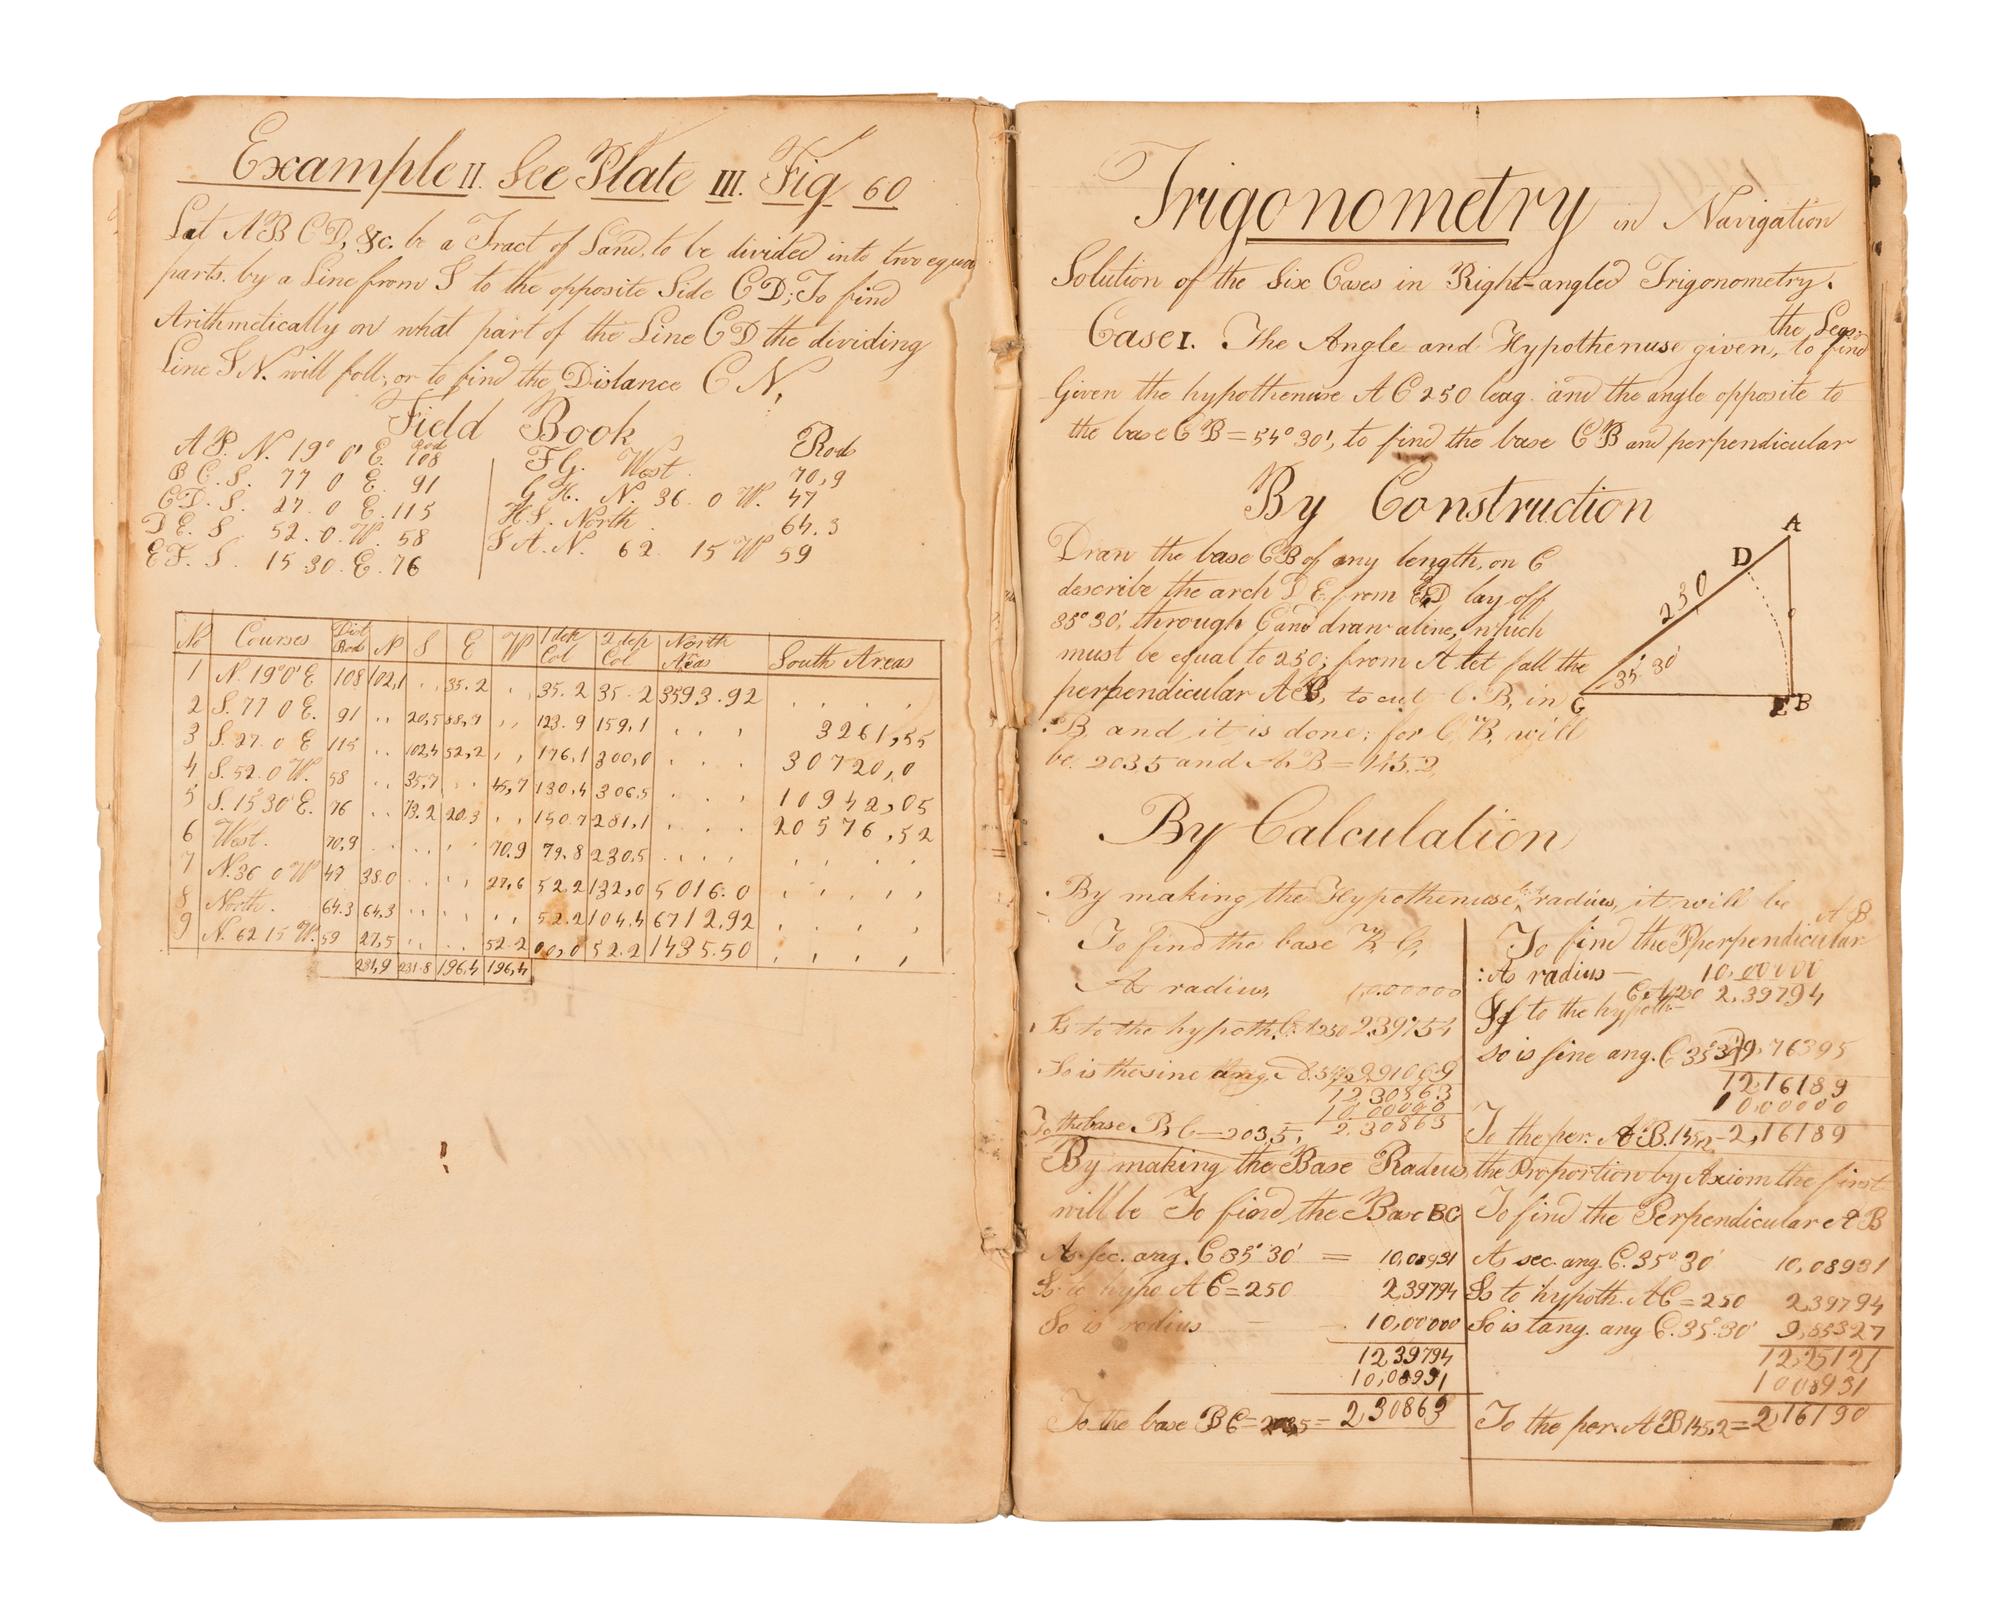 Example II. See Plate III. Fig 60
Let A B C D, &c. be a Tract of Land, to be divided into two equa
parts. by a Line from I to the opposite Side C D; To find
Arithmetically on what part of the Line C D the dividing
Line I N. will fall; or to find the Distance C N,
Field Book
Rod Rods
A B. N. 19° 0' E. 108 F G. West. 70,9
B C. S. 77 0 E. 91 G H. N. 36. 0 W. 47
C D. S. 27. 0 E. 115 H I. North 64.3
D E. S. 52. 0. W. 58 I A. N. 62 15 W 59
E F. S. 15. 30. E. 76
No Courses Dist Rods N S E W 1 dep Col 2 dep Col North Areas South Areas
1 N. 19° 0' E 108 102,1 . . 35.2 . . 35.2 35.2 3593.92 . . . .
2 S. 77 0 E. 91 . . 20,5 88,7 . . 123.9 159,1 . . . 3261,55
3 S. 27. 0 E 115 . . 102,4 52,2 . . 176,1 300,0 . . . 30720,0
4 S. 52. 0 W. 58 . . 35,7 . . 45,7 130,4 306,5 . . . 10942,05
5 S. 15 30' E. 76 . . 73.2 20.3 . . 150.7 281,1 . . . 20576,52
6 West. 70,9 . . . . . . 70.9 79.8 230,5 . . . . . . . .
7 N. 36 0 W 47 38.0 . . . . 27,6 52.2 132,0 5016.0 . . . .
8 North. 64.3 64,3 . . . . . . 52.2 104.4 6712,92 . . . .
9 N. 62 15 W. 59 27,5 . . . . 52.2 00,0 52.2 1435.50 . . . .
231,9 231.8 196,4 196,4
Trigonometry in Navigation
Solution of the Six Cases in Right-angled Trigonometry.
the Legs
Case I. The Angle and Hypothenuse given, to find
Given the hypothenuse A C 250 leag. and the angle opposite to
the base C B = 54° 30', to find the base C B and perpendicular
By Construction
Draw the base C B of any length, on C
describe the arch D E. from E D lay off
35° 30', through C and draw a line, which
must be equal to 250; from A let fall the
perpendicular A B, to cut C. B, in
B, and it is done; for C B, will
be. 203 5 and A B = 145.2
A
D
250
35° 30'
C
E B
By Calculation
By making the Hypothenuse radius, it will be
To find the base B C,
As radius, 10.00000
Is to the hypoth. C. A 250 2.39794
So is the sine ang. A. 54
12.30863
10.00000
To the base B, C = 203 5, 2.30863
A B
To find the Pperpendicular
: As radius — 10,00000
C. A 250 2,39794
to the hypoth
so is sine ang. C 35° 30' 9,76395
12,16189
10,00000
To the per. A B. 145,2 - 2,16189
By making the Base Radius, the Proportion by Axiom the first
will be To find the Base BC
As sec. ang. C 35° 30' = 10,08931
Is to hypo A C = 250 2,39794
So is radius — 10,00000
12 39794
10,08931
To the base B C = 203,5 = 2,30863
To find the Perpendicular A B
As sec. ang. C. 35° 30' 10,08931
Is to hypoth. A C = 250 2,39794
So is tang. ang C. 35° 30' 9,85327
12,25121
10 08931
To the per. A B 145,2 = 2,16190